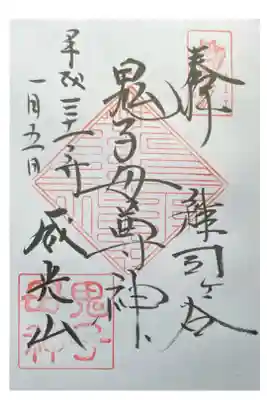 奉
雑司ヶ谷
鬼子母尊神
平成三十一年
一月五日
威光山
鬼子母神